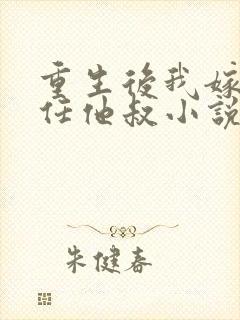 重生後我嫁
任他叔小說
朱健春